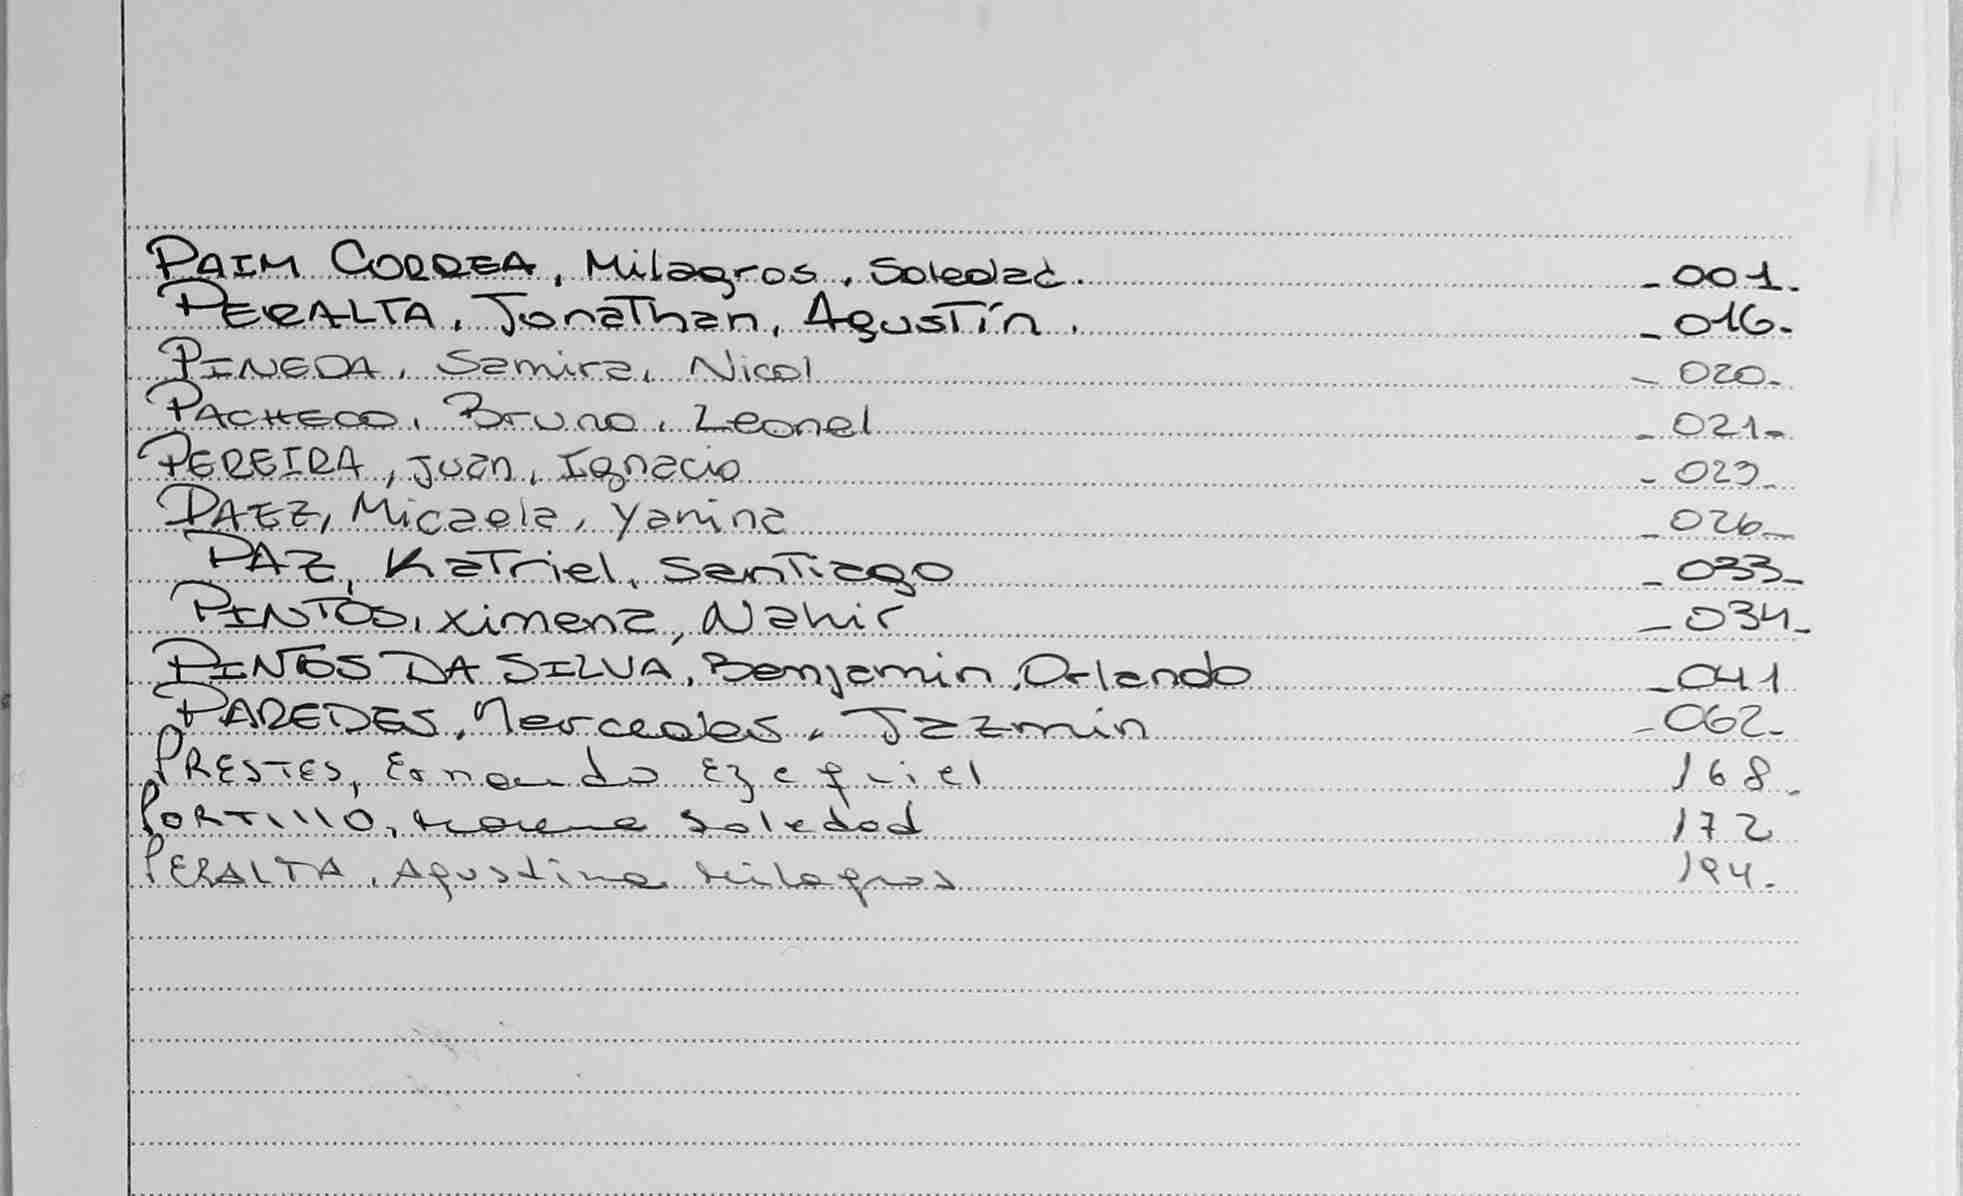 PAIM CORREA, Milagros, Soledad. - 001.
PERALTA, Jonathan, Agustín. - 016.
PINEDA, Samira, Nicol - 020.
PACHECO, Bruno, Leonel - 021-
PEREIRA, Juan, Ignacio - 023.
PAEZ, Micaela, Yanina - 026-
PAZ, Katriel, Santiago - 033-
PINTOS, Ximena, Nahir - 034-
PINTOS DA SILVA, Benjamin, Orlando - 041
PAREDES, Mercedes, Jazmin - 062-
PRESTES, Ernando Ezequiel 168.
PORTILLO, Morena Soledad 172
PERALTA, Agustina Milagros 194.